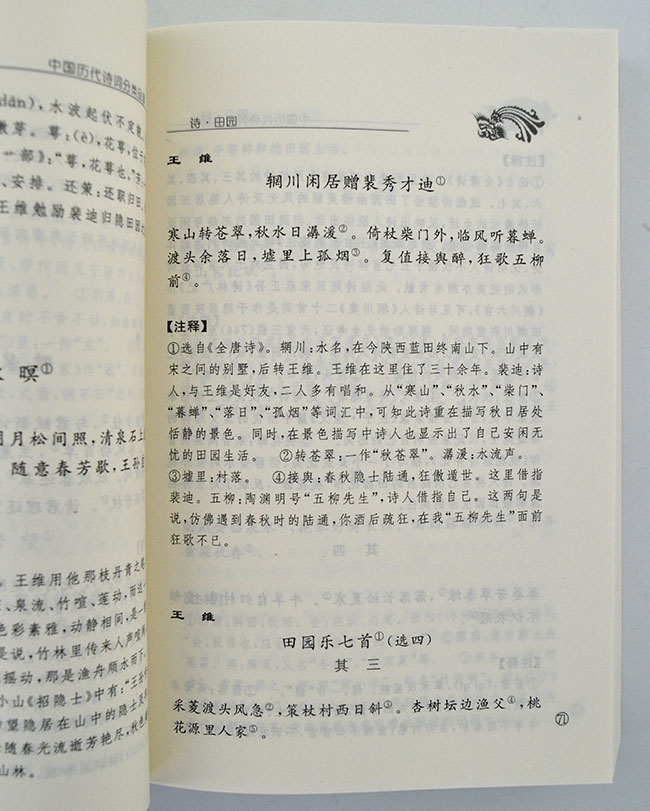 中国历代诗词分类
dàn)，水波起伏不定貌
嫩芽。萼：(è)，花萼，位于
部》："萼，花萼也。"
、安排。还兼：还职归田
王维勉励裴迪归隐田园
暝①
明月松间照，清泉石上
随意春芳歇，王孙自
。王维用他那枝丹青之
、泉流、竹喧、莲动，而这一
色彩素雅，动静相间，是一
是说，竹林里传来人声喧
摇动，那是渔舟顺水而下
小山《招隐士》中有："王孙
望隐居在山中的隐士及
随春光流逝芳艳尽，秋色
山林。
诗·田园
王 维
辋川闲居赠裴秀才迪①
寒山转苍翠，秋水日潺湲②。倚杖柴门外，临风听暮蝉。
渡头余落日，墟里上孤烟③。复值接舆醉，狂歌五柳
前④。
【注释】
①选自《全唐诗》。辋川：水名，在今陕西蓝田终南山下。山中有
宋之问的别墅，后转王维。王维在这里住了三十余年。裴迪：诗
人，与王维是好友，二人多有唱和。从"寒山"、"秋水"、"柴门"、
"暮蝉"、"落日"、"孤烟"等词汇中，可知此诗重在描写秋日居处
恬静的景色。同时，在景色描写中诗人也显示出了自己安闲无
忧的田园生活。 ②转苍翠：一作"秋苍翠"。潺湲：水流声。
③墟里：村落。 ④接舆：春秋隐士陆通，狂傲遁世。这里借指
裴迪。五柳：陶渊明号"五柳先生"，诗人借指自己。这两句是
说，仿佛遇到春秋时的陆通，你酒后疏狂，在我"五柳先生"面前
狂歌不已。
王 维
田园乐七首①(选四)
其 三
采菱渡头风急②，策杖村西日斜③。杏树坛边渔父④，桃
花源里人家⑤。
71